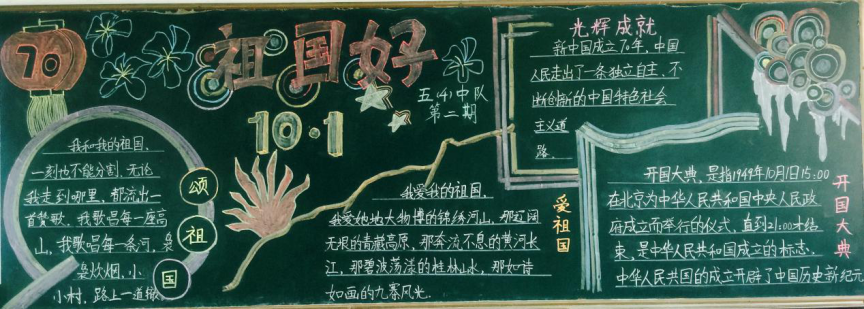 70
祖国好
10·1
五(4)中队
第二期
我和我的祖国，
一刻也不能分割，无论
我走到哪里，都流出一
首赞歌，我歌唱每一座高
山，我歌唱每一条河，袅
袅炊烟，小
小村，路上一道辙
颂
祖
国
我爱我的祖国，
我爱她地大物博的锦绣河山，那辽阔
无垠的青藏高原，那奔流不息的黄河长
江，那碧波荡漾的桂林山水，那如诗
如画的九寨风光.
爱祖国
光辉成就
新中国成立70年，中国
人民走出了一条独立自主，不
断创新的中国特色社会
主义道
路.
开国大典，是指1949年10月1日15:00
在北京为中华人民共和国中央人民政
府成立而举行的仪式，直到21:00才结
束，是中华人民共和国成立的标志，
中华人民共国的成立开辟了中国历史新纪元
开国大典